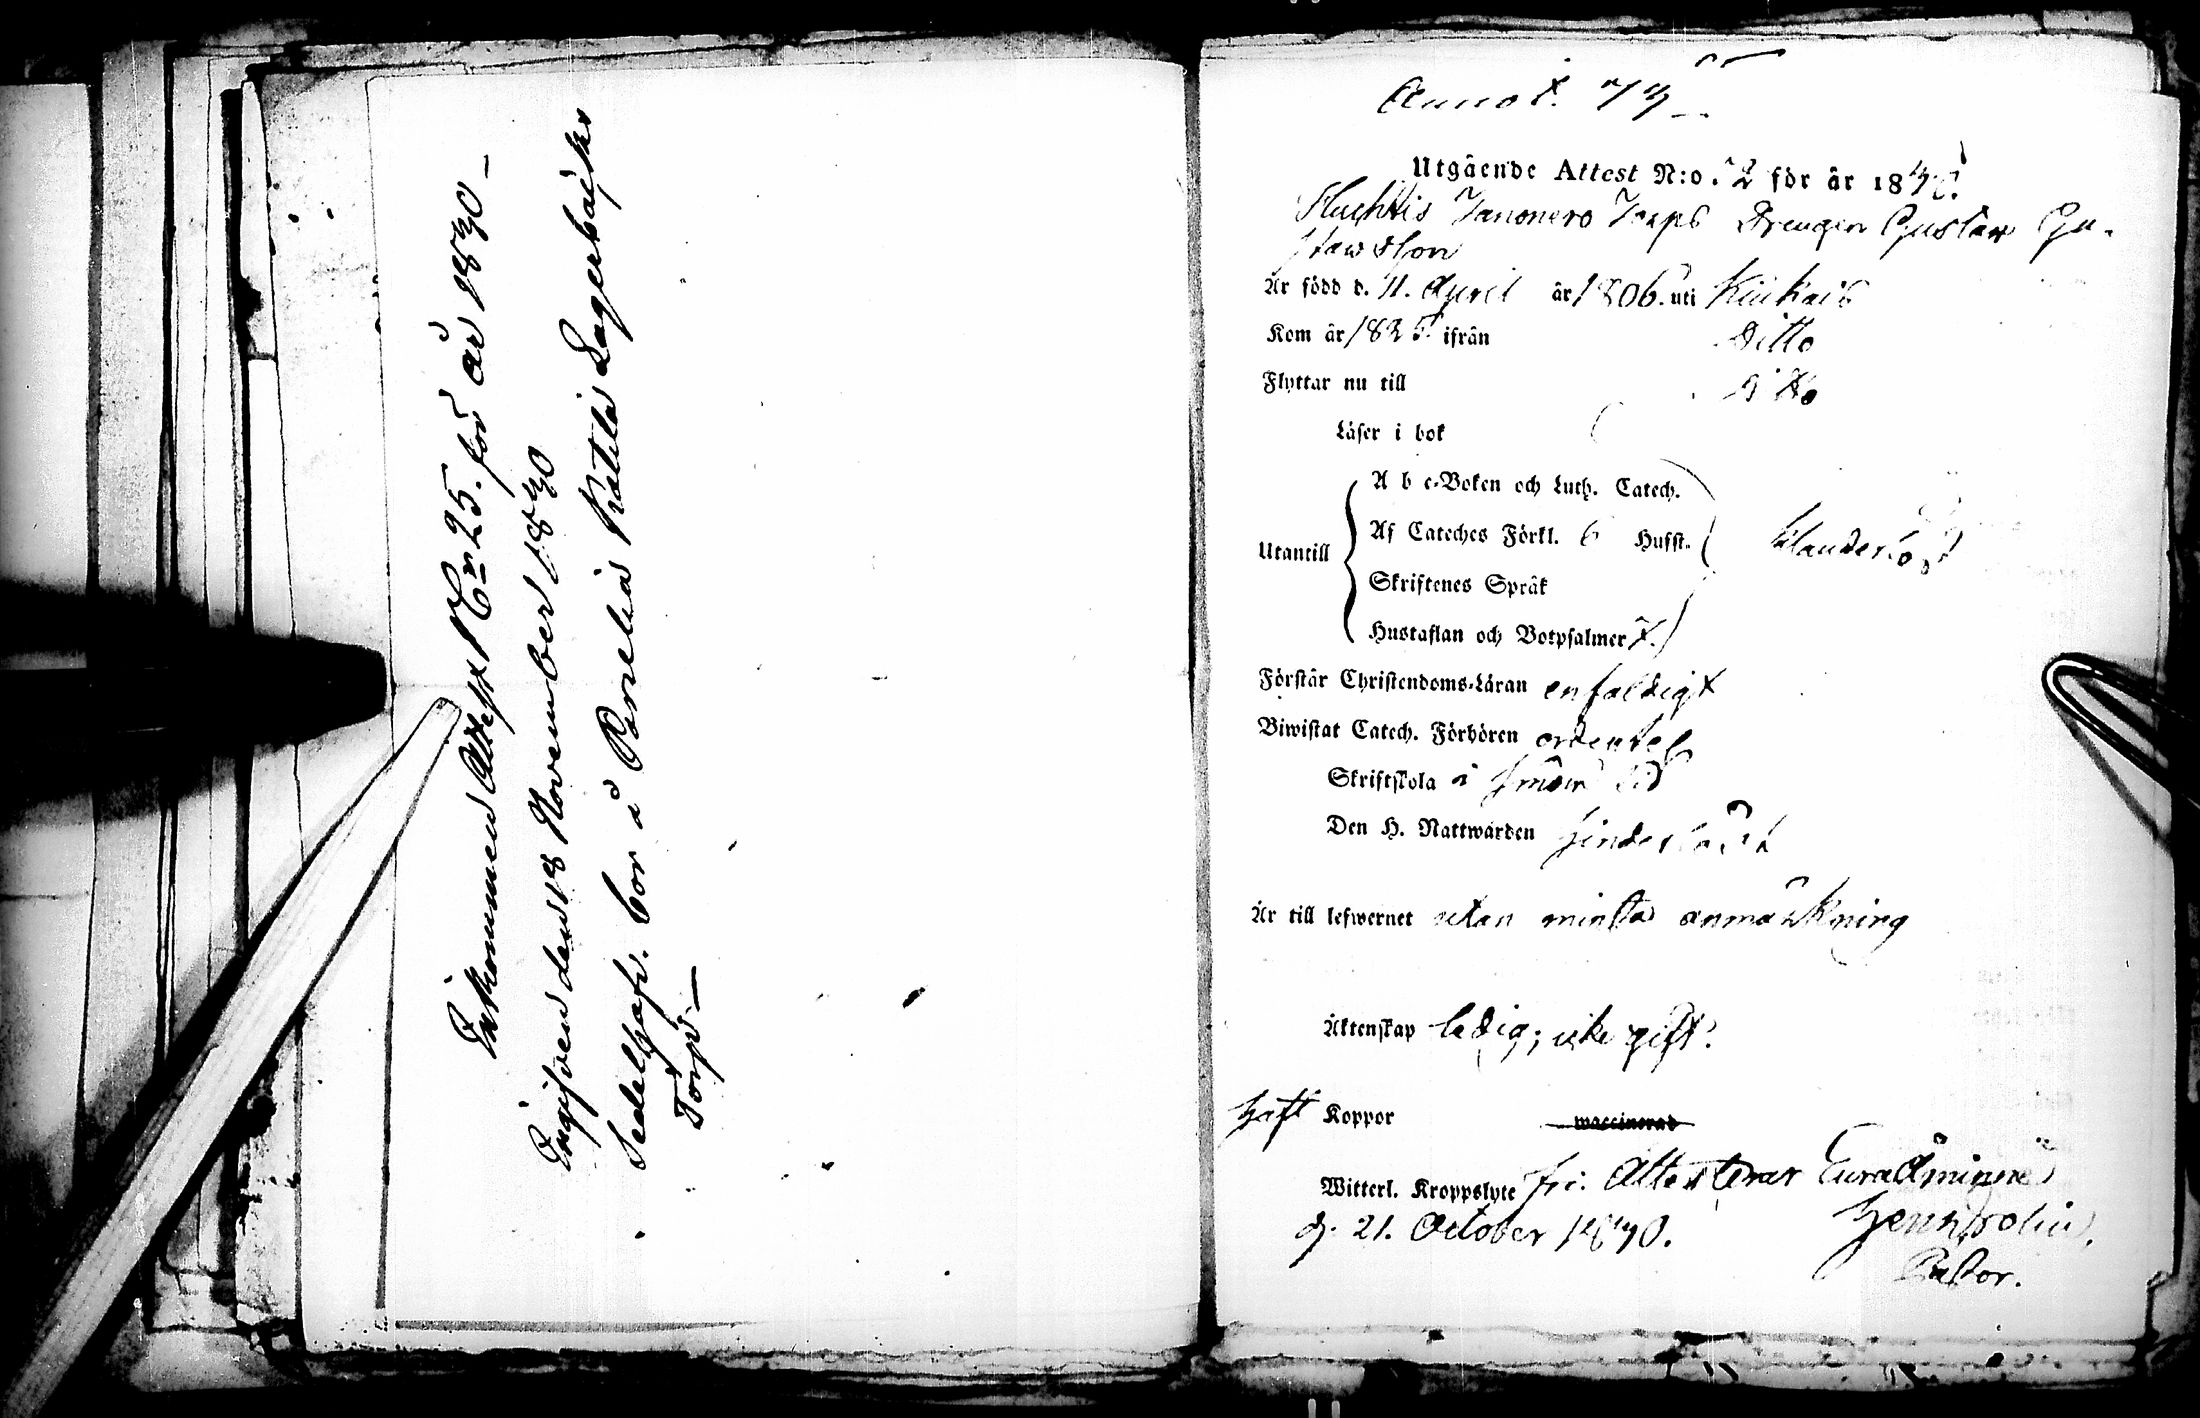 Inkommen Attest No 25. för år 1840 –
Ingifven den 18 November 1840
Sedelhafv. bor å Pernelia Kätilä Lagerbäcks
Torp –
Annot.
Utgående Attest N:o. 72 för år 1840.
Torps Drengen Gustav Gu-
stavsson
Är född d. 11. April år 1806. uti Kiukais
Kom år 183 ifrån Ditto
Flyttar nu till Ditto
Läser i bok
A b c-Boken och Luth. Catech.
Utantill Af Cateches Förkl. 6 Hufst. klanderlöst
Skriftenes Språk
Hustaflan och Botpsalmer 7.
Förstår Christendoms-Läran enfaldigt
Biwistat Catech. Förhören ordentel.
Skriftskola i sinom tid
Den H. Nattwarden hinderlöst
Är till lefwernet utan minsta anmärkning
Äktenskap ledig; icke gift.
haft Koppor waccinerad
Witterl. Kroppslyte fri. Attesterar Euraåminne
d. 21. October 1840.
Pastor.